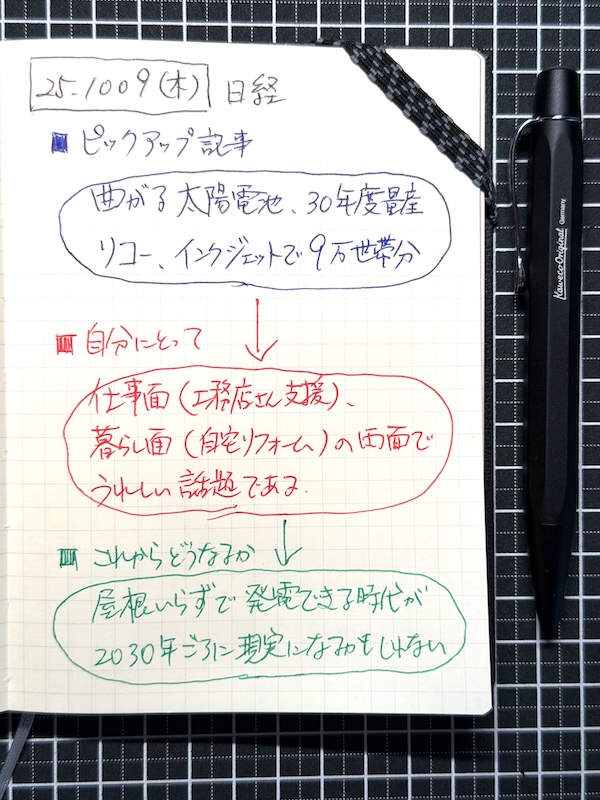 25-1009(木) 日経
■ピックアップ記事
曲がる太陽電池、30年度量産
リコー、インクジェットで9万世帯分
■自分にとって
仕事面(工務店さん支援)、
暮らし面(自宅リフォーム)の両面で
うれしい話題である.
■これからどうなるか
屋根いらずで発電できる時代が
2030年ごろに現実になるかもしれない
Kaweco-Original Germany